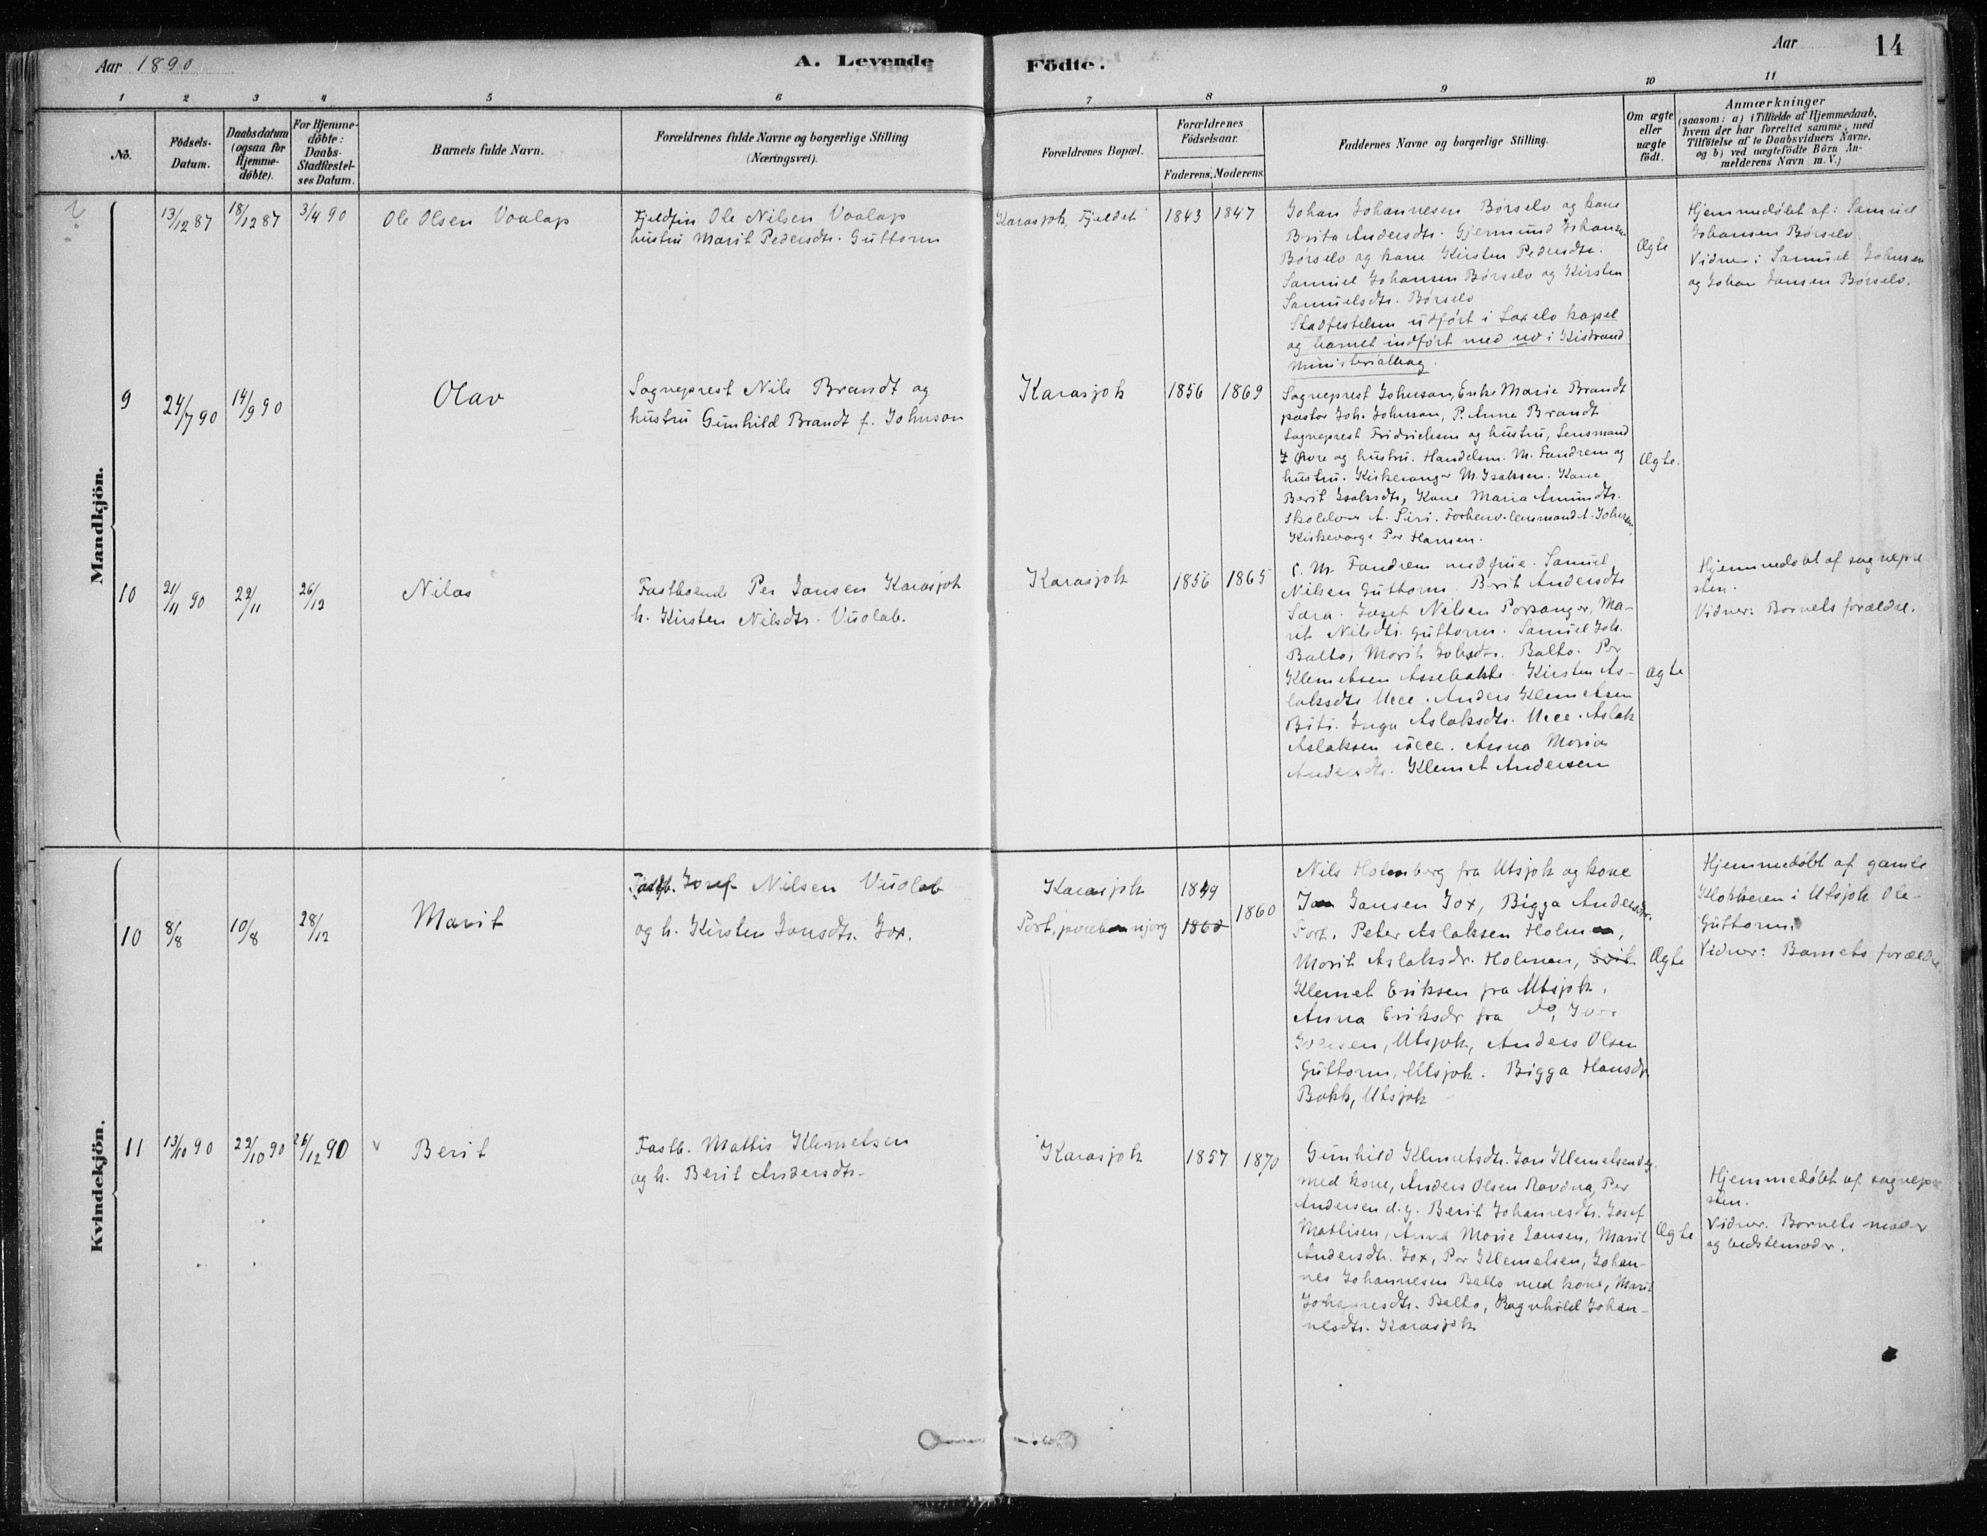 Aar 1890
A. Levende
Födte.
Aar
14
1 2 3 4 5 6 7 8 9 10 11
No.
Födsels-
Datum.
Daabsdatum
(ogsaa for
Hjemme-
døbte).
For Hjemme-
døbte:
Daabs-
Stadfæstel-
ses Datum.
Barnets fulde Navn.
Forældrenes fulde Navne og borgerlige Stilling
(Næringsvei).
Forældrenes Bopæl.
Forældrenes
Födselsaar.
Faderens. Moderens.
Faddernes Navne og borgerlige Stilling.
Om ægte
eller
uægte
födt.
Anmærkninger
(saasom: a) i Tilfælde af Hjemmedaab,
hvem der har forrettet samme, med
Tilföielse af to Daabsvidners Navne.
og b) ved uægtefödte Börn An-
melderens Navn m. V.)
Mandkjön.
13/12 87
18/12 87
3/4 90
Ole Olsen Vaalap
Fjeldfin Ole Nilsen Vaalap
hustru Marit Pedersdtr. Guttorm
Karasjok, Fjeldet
1843 1847
Johan Johannesen Børselv og kone
Brita Andersdtr. Gjermund Johansen
Børselv og kone Kirsten Pedersdtr.
Samuel Johansen Børselv og Kirsten
Samuelsdtr. Børselv
Stadfestelsen udført i Laxelv kapel
og barnet indført med no i Kistrand
Ministerialbog.
Ægte
Hjemmedøbt af: Samuel
Johansen Børselv.
Vidner: Samuel Johnsen
og Johan Jansen Børselv.
9
24/7 90
14/9 90
Olav
Sogneprest Nils Brandt og
hustru Gunhild Brandt f. Johnson
Karasjok
1856 1869
Sogneprest Johnson, Enke Marie Brandt
pastor Joh. Johnson, P. Anne Brandt
Sogneprest Fridrichsen og hustru, Lensmand
og hustru. Handelsm. M. Fandrem og
hustru. Kirkesanger M. Isaksen. Kone
Berit Isaksdtr, Kone Maria Amundtr.
A. Siri. Forhenv. lensmand A. Johnsen
Kirkeverge Per Hansen.
Ægte.
10
21/11 90
22/11
26/12
Nilas
Fastboende Per Jansen Karasjok
h. Kirsten Nilsdtr. Vuolab.
Karasjok
1856 1865
C. M. Fandrem med frue. Samuel
Nilsen Guttorm. Berit Andersdtr
Sara. Josef Nilsen Porsanger, Ma-
rit Nilsdtr. Guttorm. Samuel Joh.
Balto, Marit Johsdtr. Balto. Per
Klemetsen Assebakte. Kirsten As-
laksdtr Uece. Anders Klemetsen
Biti. Inga Aslaksdtr. Uece. Aslak
Aslaksen Uece. Anna Maria
Andersdtr. Klemet Andersen
Ægte
Hjemmedøbt af sognepre-
sten.
Vidner: Barnets forældre.
Kvindekjön.
10
8/8
10/8
28/12
Marit
Fastb. Josef Nilsen Vuolab
og h. Kirsten Jansdtr. Jox.
Karasjok
1849
1860
1860
Nils Holmberg fra Utsjok og kone
Jan Jansen Jox, Bigga Andersdr.
Fort. Peter Aslaksen Holmen,
Marit Aslaksdr. Holmen,
Klemet Eriksen fra Utsjok,
Anna Eriksdr fra do, Iver
Iversen, Utsjok, Anders Olsen
Guttorm, Utsjok. Bigga Hansdr
Bokk, Utsjok
Ægte
Hjemmedøbt af gamle
Klokkeren i Utsjok Ole
Guttorm.
Vidner: Barnets forældre
11
13/10 90
22/10 90
26/12 90
Berit
Fastb. Mattis Klemetsen
og h. Berit Andersdtr.
Karasjok
1857 1870
Gunhild Klemetsdtr. Jan Klemetsen d.y.
med kone, Anders Olsen Ravdna, Per
Andersen d.y. Berit Johannesdtr. Josef
Mathisen, Anna Marie Jansen, Marit
Andersdtr. Jox, Per Klemetsen, Johan-
nes Johannesen Balto med kone, Marit
Johannesdtr. Balto, Ragnhild Johan-
nesdtr. Karasjok
Ægte
Hjemmedøbt af sognepre-
sten.
Vidner. Barnets moder
og bedstemoder.